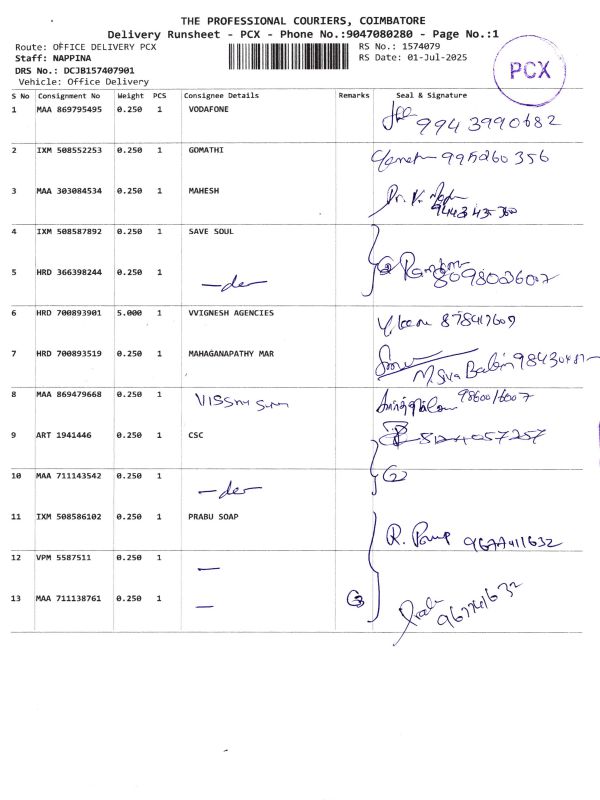 THE PROFESSIONAL COURIERS, COIMBATORE
Delivery Runsheet - PCX - Phone No.:9047080280 - Page No.:1
Route: OFFICE DELIVERY PCX RS No.: 1574079
Staff: NAPPINA RS Date: 01-Jul-2025
DRS No.: DCJB157407901
Vehicle: Office Delivery
PCX
S No Consignment No Weight PCS Consignee Details Remarks Seal & Signature
1 MAA 869795495 0.250 1 VODAFONE 9943990682
2 IXM 508552253 0.250 1 GOMATHI
3 MAA 303084534 0.250 1 MAHESH
4 IXM 508587892 0.250 1 SAVE SOUL
5 HRD 366398244 0.250 1
6 HRD 700893901 5.000 1 VVIGNESH AGENCIES
7 HRD 700893519 0.250 1 MAHAGANAPATHY MAR
8 MAA 869479668 0.250 1
9 ART 1941446 0.250 1 CSC
10 MAA 711143542 0.250 1
11 IXM 508586102 0.250 1 PRABU SOAP
12 VPM 5587511 0.250 1 —
13 MAA 711138761 0.250 1 —